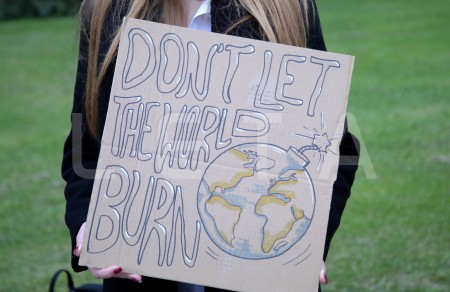 DON'T LET
THE WORLD
BURN